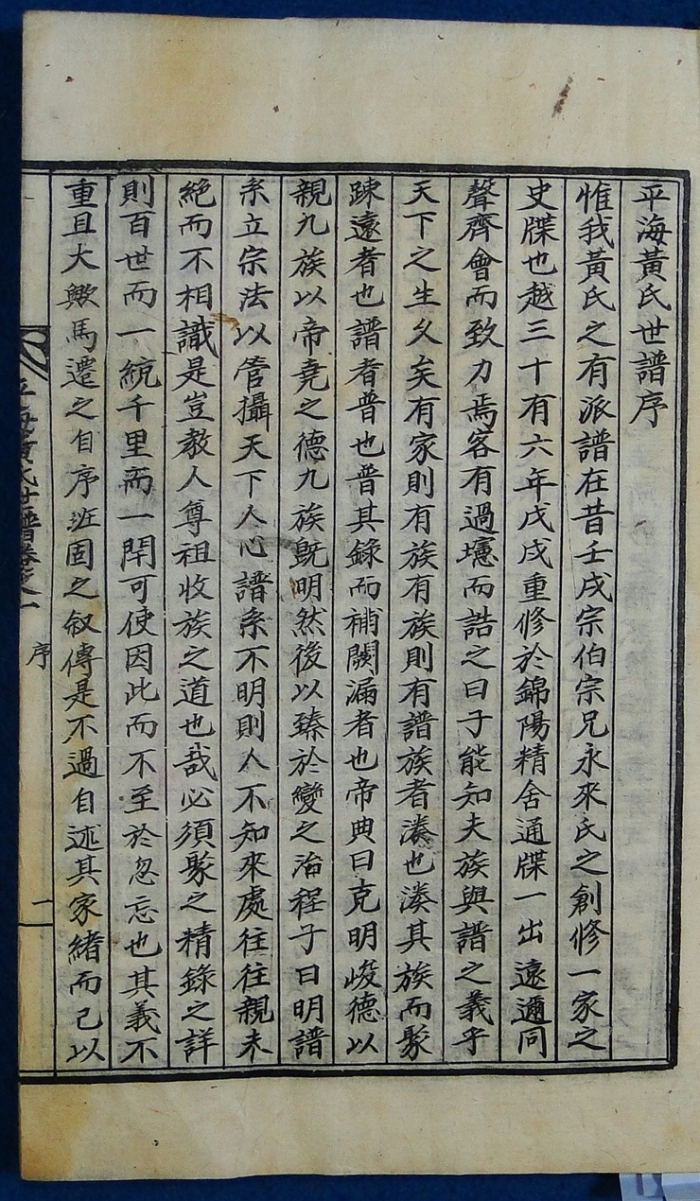 平海黃氏世譜序
惟我黃氏之有派譜在昔壬戌宗伯宗兄永來氏之創修一家之
史牒也越三十有六年戊戌重修於錦陽精舍通牒一出遠邇同
聲齊會而致力焉客有過壚而誥之曰子能知夫族與譜之義乎
天下之生久矣有家則有族有族則有譜族者湊也湊其族而聚
踈遠者也譜者普也普其錄而補闕漏者也帝典曰克明峻德以
親九族以帝堯之德九族旣明然後以臻於變之治程子曰明譜
系立宗法以管攝天下人心譜系不明則人不知來處往往親未
絶而不相識是豈教人尊祖收族之道也哉必須聚之精錄之詳
則百世而一統千里而一閈可使因此而不至於忽忘也其義不
重且大歟馬遷之自序班固之叙傳是不過自述其家緒而已以
平海黃氏世譜卷之一
序
一